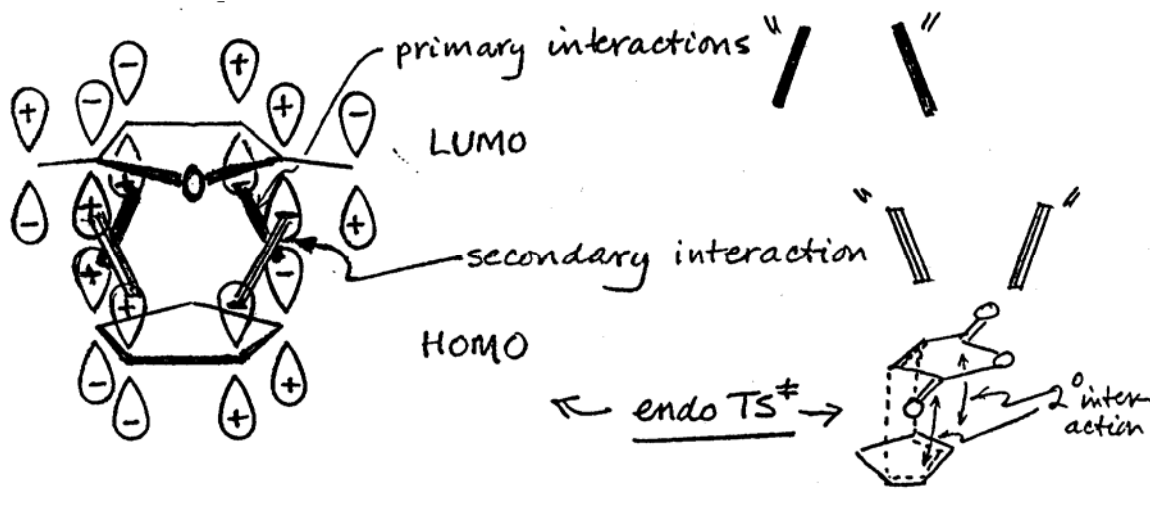 primary interactions " "
LUMO
" "
secondary interaction
HOMO
endo TS‡
2° inter-
action
- + + - - + + -
+ - + - - + + -
+ - + - - - + +
O